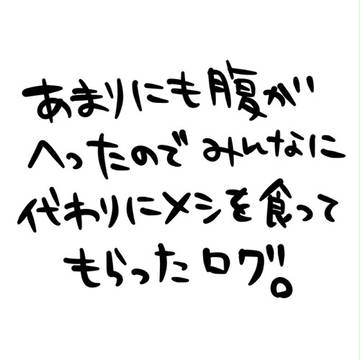 あまりにも腹が
へったので みんなに
代わりにメシを食って
もらったログ。